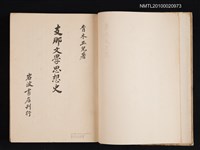 NMTL20100020973
青木正児著
支那文學思想史
岩波書店刊行